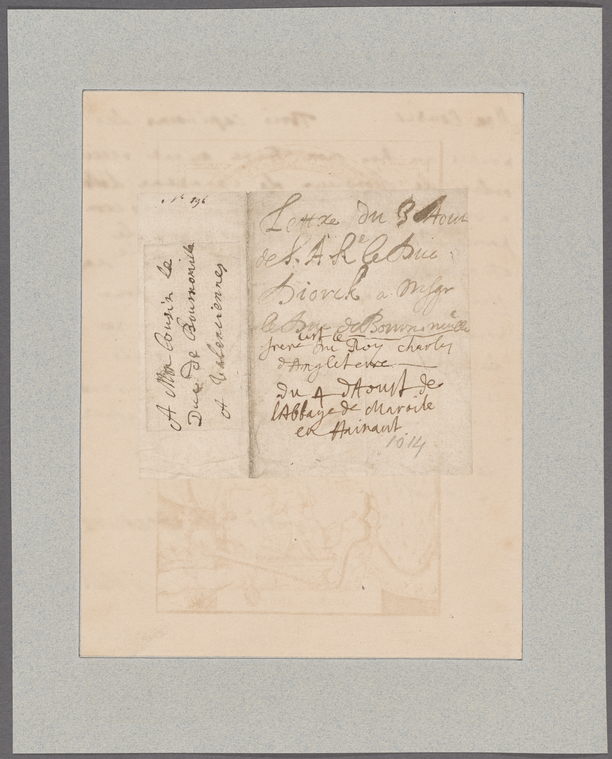 No 196
A Mon Cousin le
Duc de Bournonville
A Valenciennes
Lettre du 3 Aout
de S. A. Rle le Duc
Diorck a Msgr
le Duc de Bournonville
c'est le
frere du Roy Charles
d'Angleterre
du 4 d'Aoust de
l'Abbaye de Maroile
en Hainaut
1614